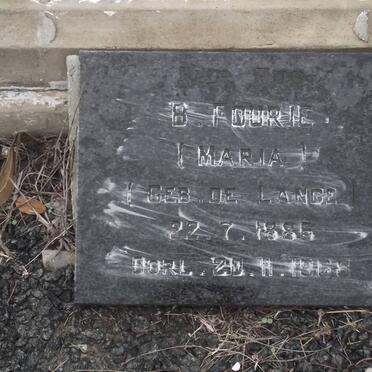 B. FOURIE
(MARIA)
(GEB. DE LANGE)
22.7.1885
OORL. 20.11.1968